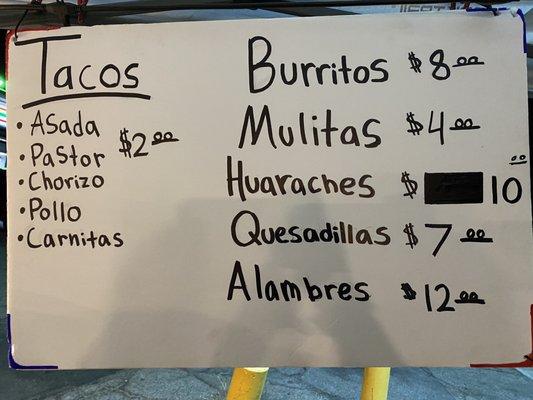 Tacos
• Asada
• Pastor $2.00
• Chorizo
• Pollo
• Carnitas
Burritos $8.00
Mulitas $4.00
Huaraches $ 10.00
Quesadillas $7.00
Alambres $12.00